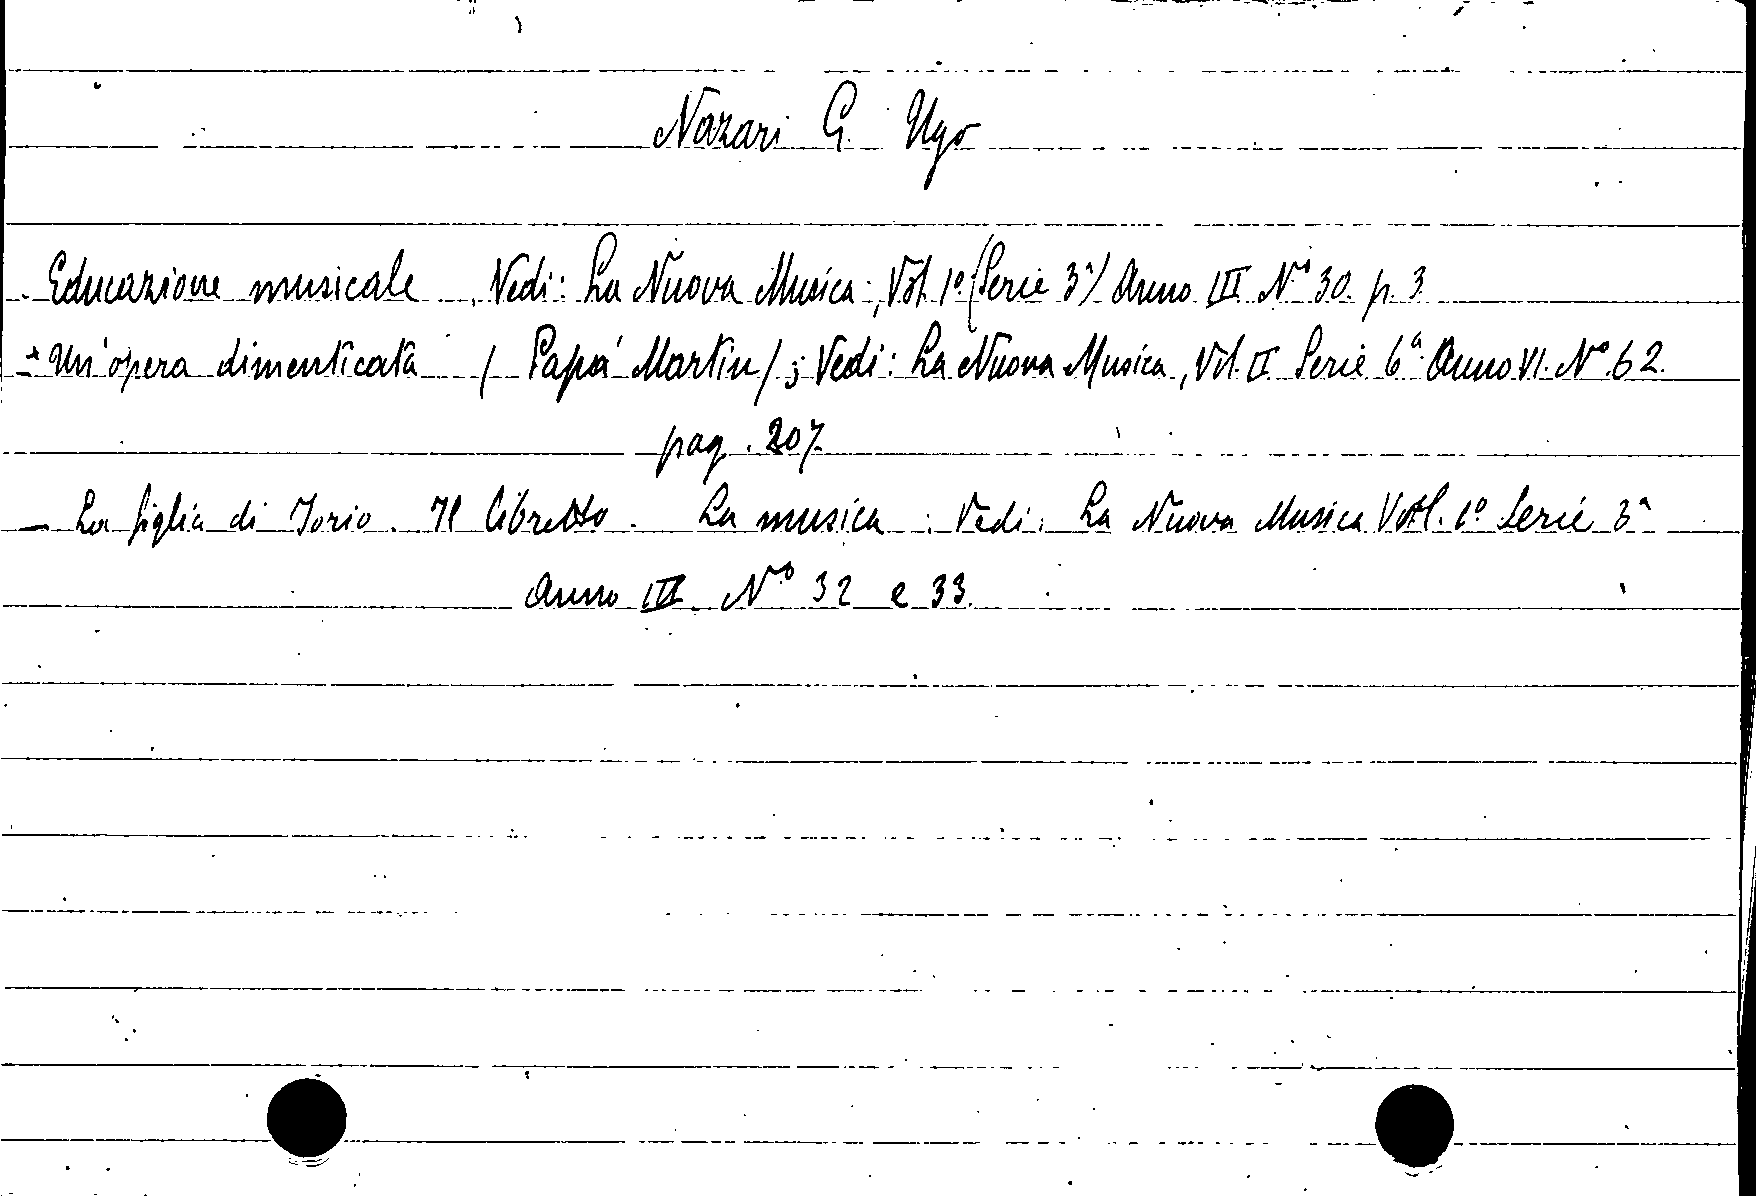 Nazari G. Ugo
Educazione musicale. Vedi: La Nuova Musica, Vol. 1º (Serie 3ª) Anno III Nº 30. p. 3
- Un'opera dimenticata (Papà Martin); Vedi: La Nuova Musica, Vol. II Serie 6ª Anno VI. Nº 62.
pag. 207
- La figlia di Jorio. Il libretto. La musica. Vedi: La Nuova Musica Vol. 1º Serie 3ª
Anno III. Nº 32 e 33.